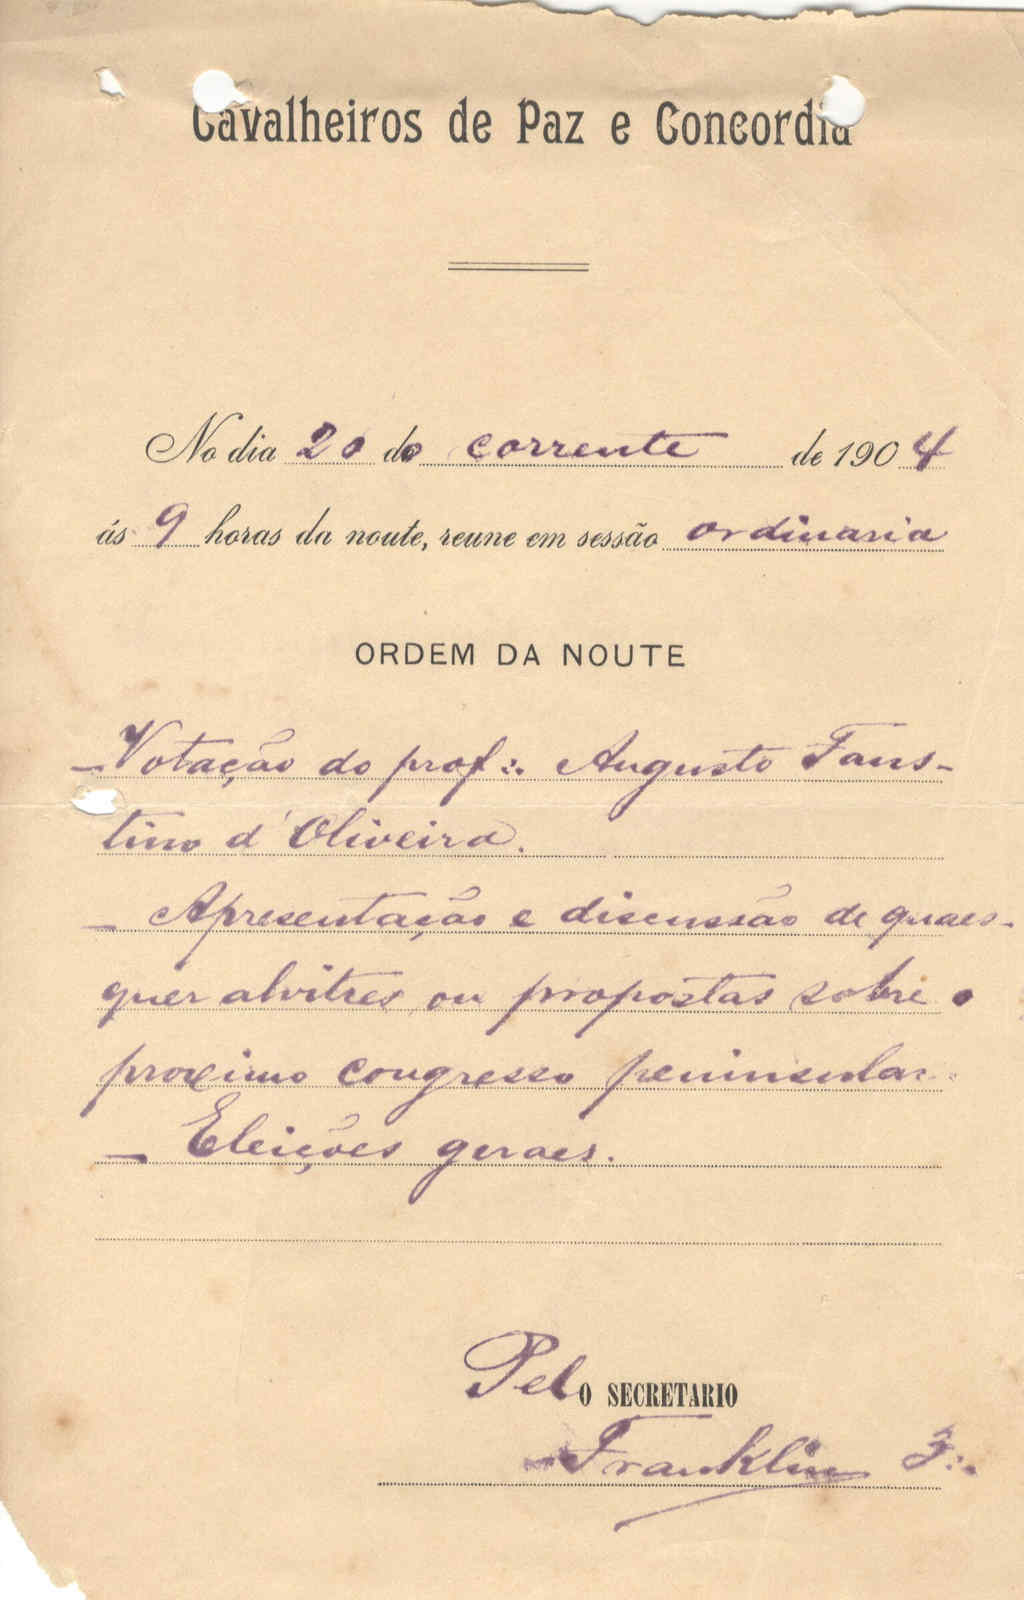 Cavalheiros de Paz e Concordia
No dia 20 do corrente de 1904
ás 9 horas da noute, reune em sessão ordinaria
ORDEM DA NOUTE
- Votação do prof∴ Augusto Faus-
tino d'Oliveira.
- Apresentação e discussão de quaes-
quer alvitres ou propostas sobre o
proximo congresso peninsular.
- Eleições geraes.
Pelo SECRETARIO
Franklin 3∴